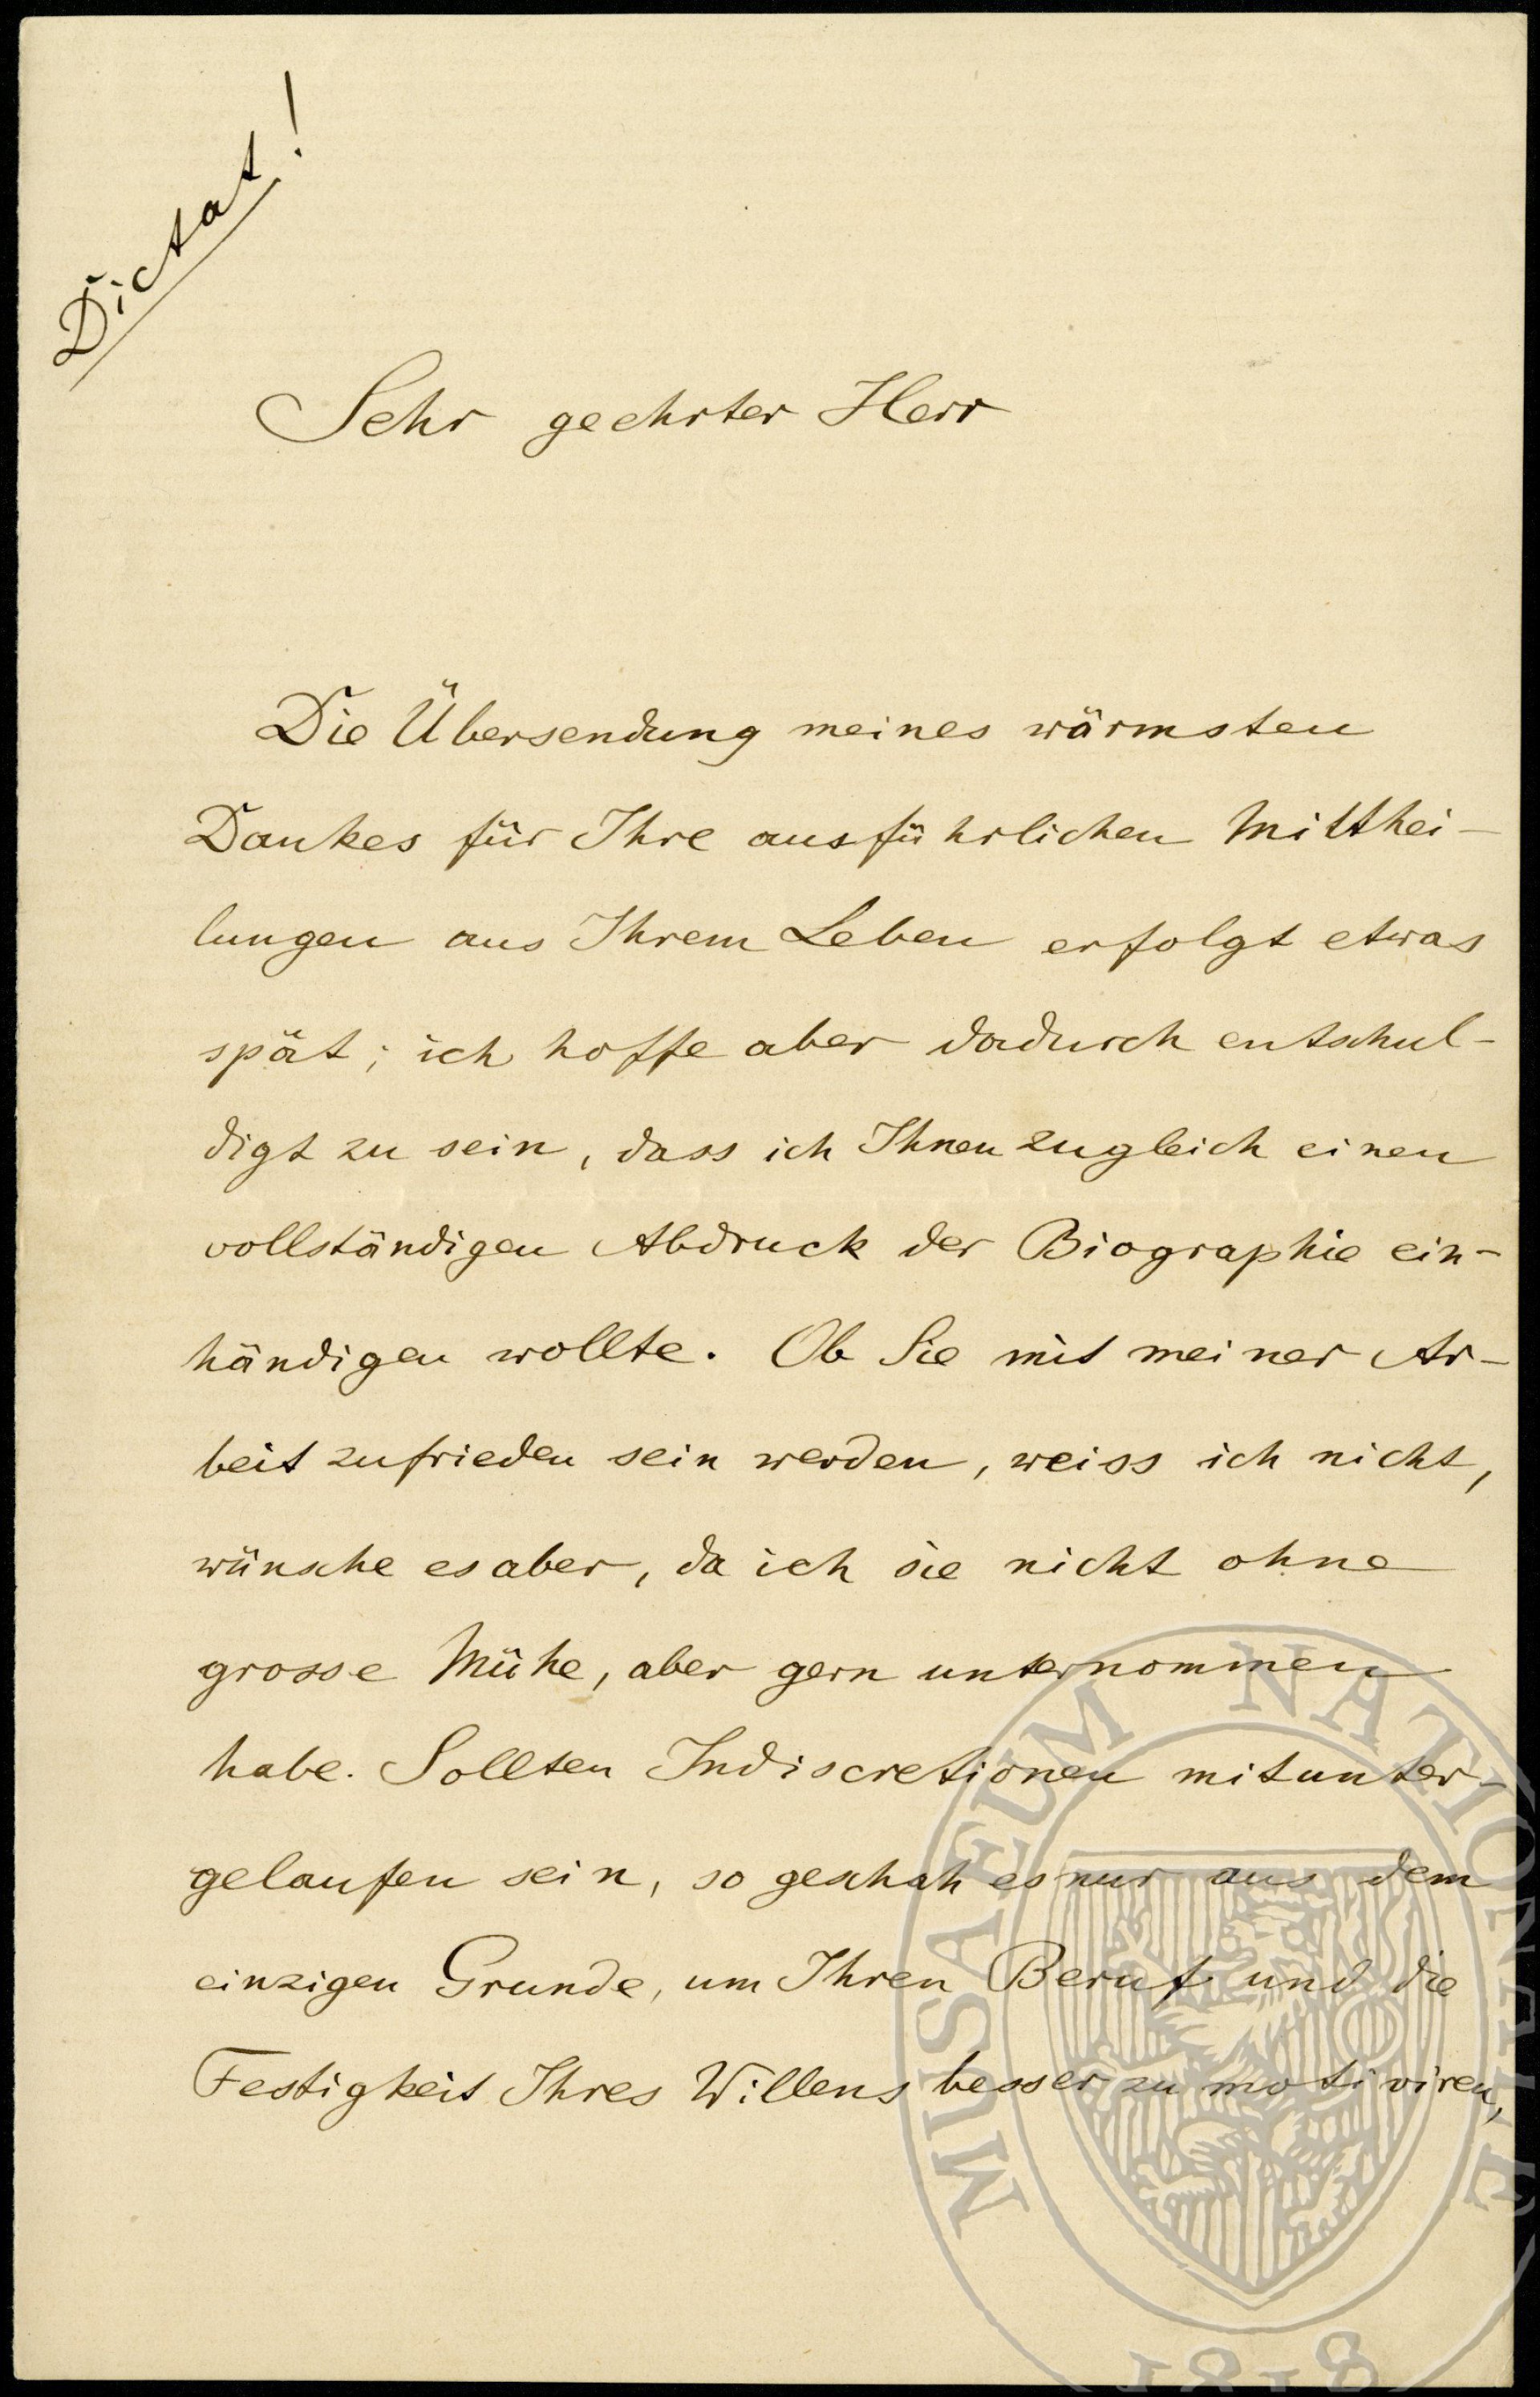 Dictat!
Sehr geehrter Herr
Die Übersendung meines wärmsten
Dankes für Ihre ausführlichen Mitthei-
lungen aus Ihrem Leben erfolgt etwas
spät; ich hoffe aber dadurch entschul-
digt zu sein, dass ich Ihnen zugleich einen
vollständigen Abdruck der Biographie ein-
händigen wollte. Ob Sie mit meiner Ar-
beit zufrieden sein werden, weiss ich nicht,
wünsche es aber, da ich sie nicht ohne
grosse Mühe, aber gern unternommen
habe. Sollten Indiscretionen mitunter-
gelaufen sein, so geschah es nur aus dem
einzigen Grunde, um Ihren Beruf und die
Festigkeit Ihres Willens besser zu motiviren,
MUSAEUM NATIONALE
1818